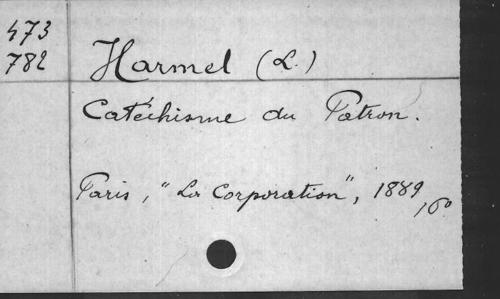 473
782
Harmel (L.)
Catéchisme du Patron.
Paris, "La Corporation", 1889
16º